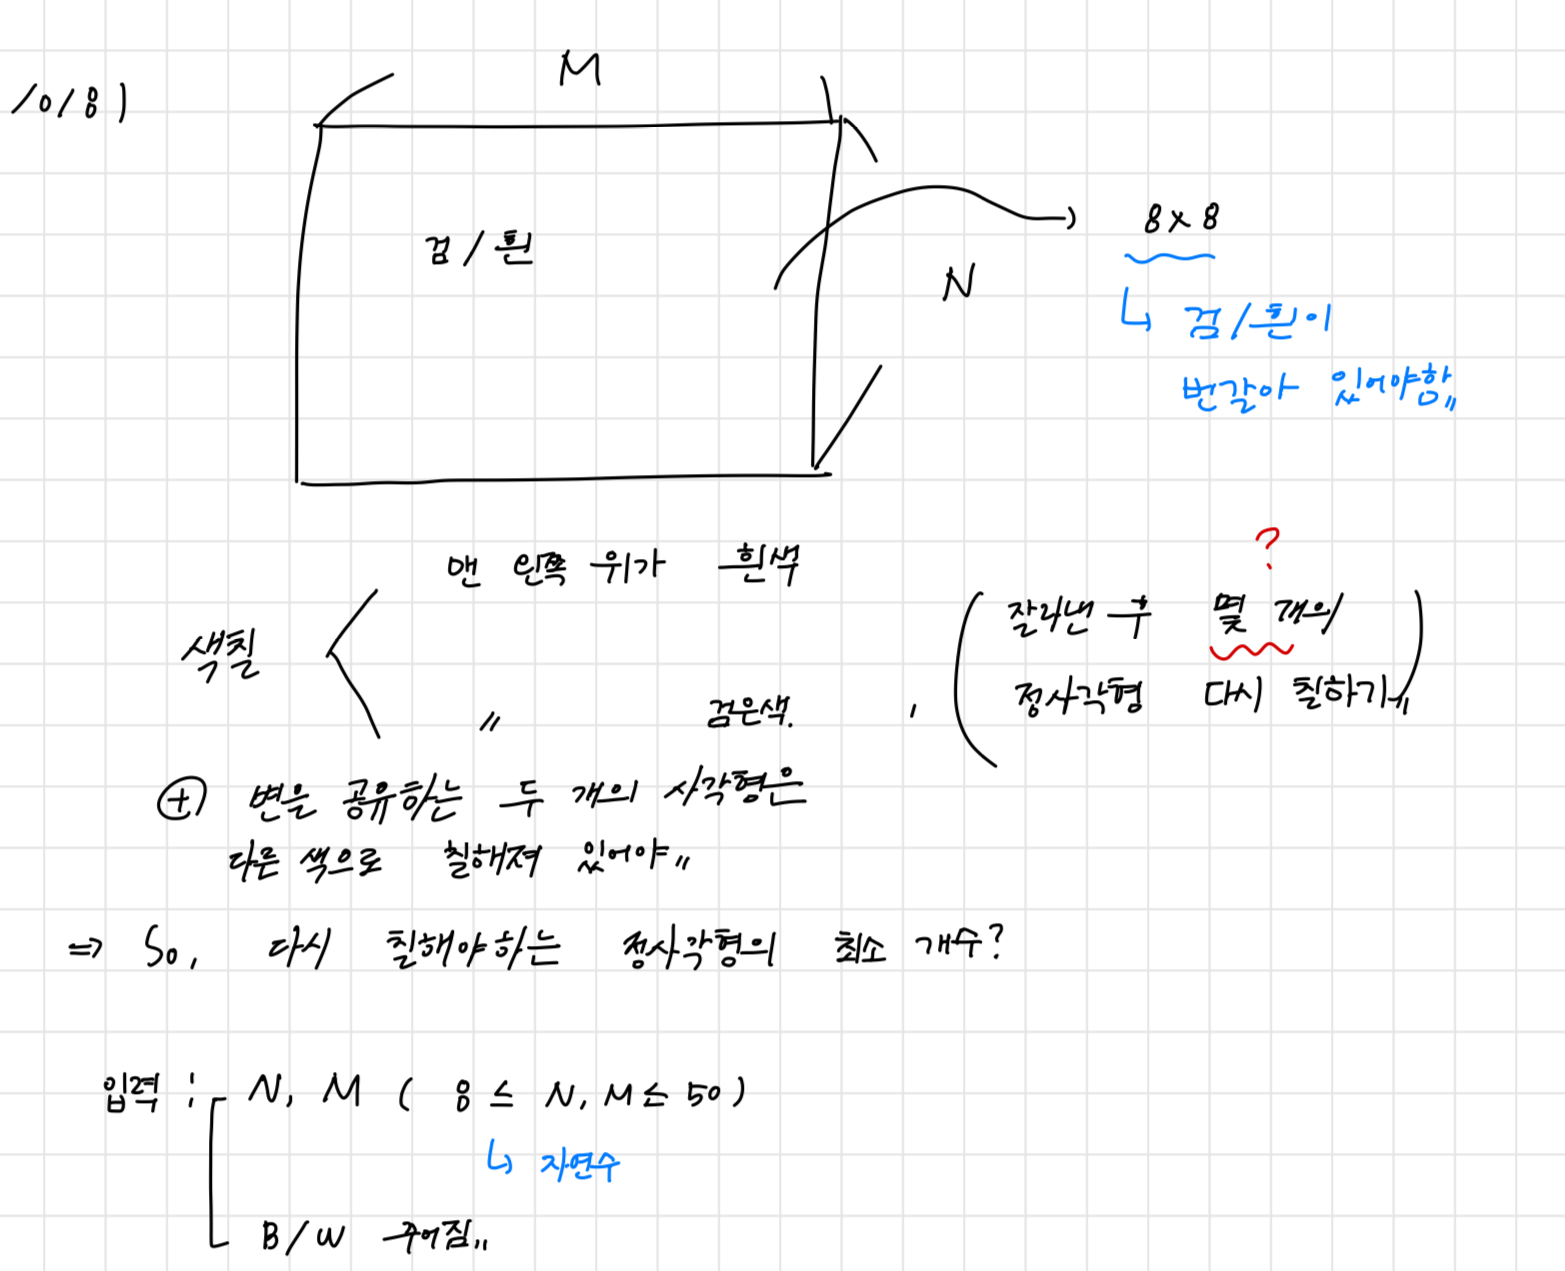 1018)
M
검/흰
N
8×8
↳ 검/흰이
번갈아 있어야함〃
맨 왼쪽 위가 흰색
색칠
〃 검은색.
,
?
(잘라낸 후 몇 개의
정사각형 다시 칠하기〃)
⊕ 변을 공유하는 두 개의 사각형은
다른 색으로 칠해져 있어야〃
⇒ So, 다시 칠해야하는 정사각형의 최소 개수?
입력 : N, M ( 8 ≤ N, M ≤ 50 )
↳ 자연수
B/W 주어짐〃